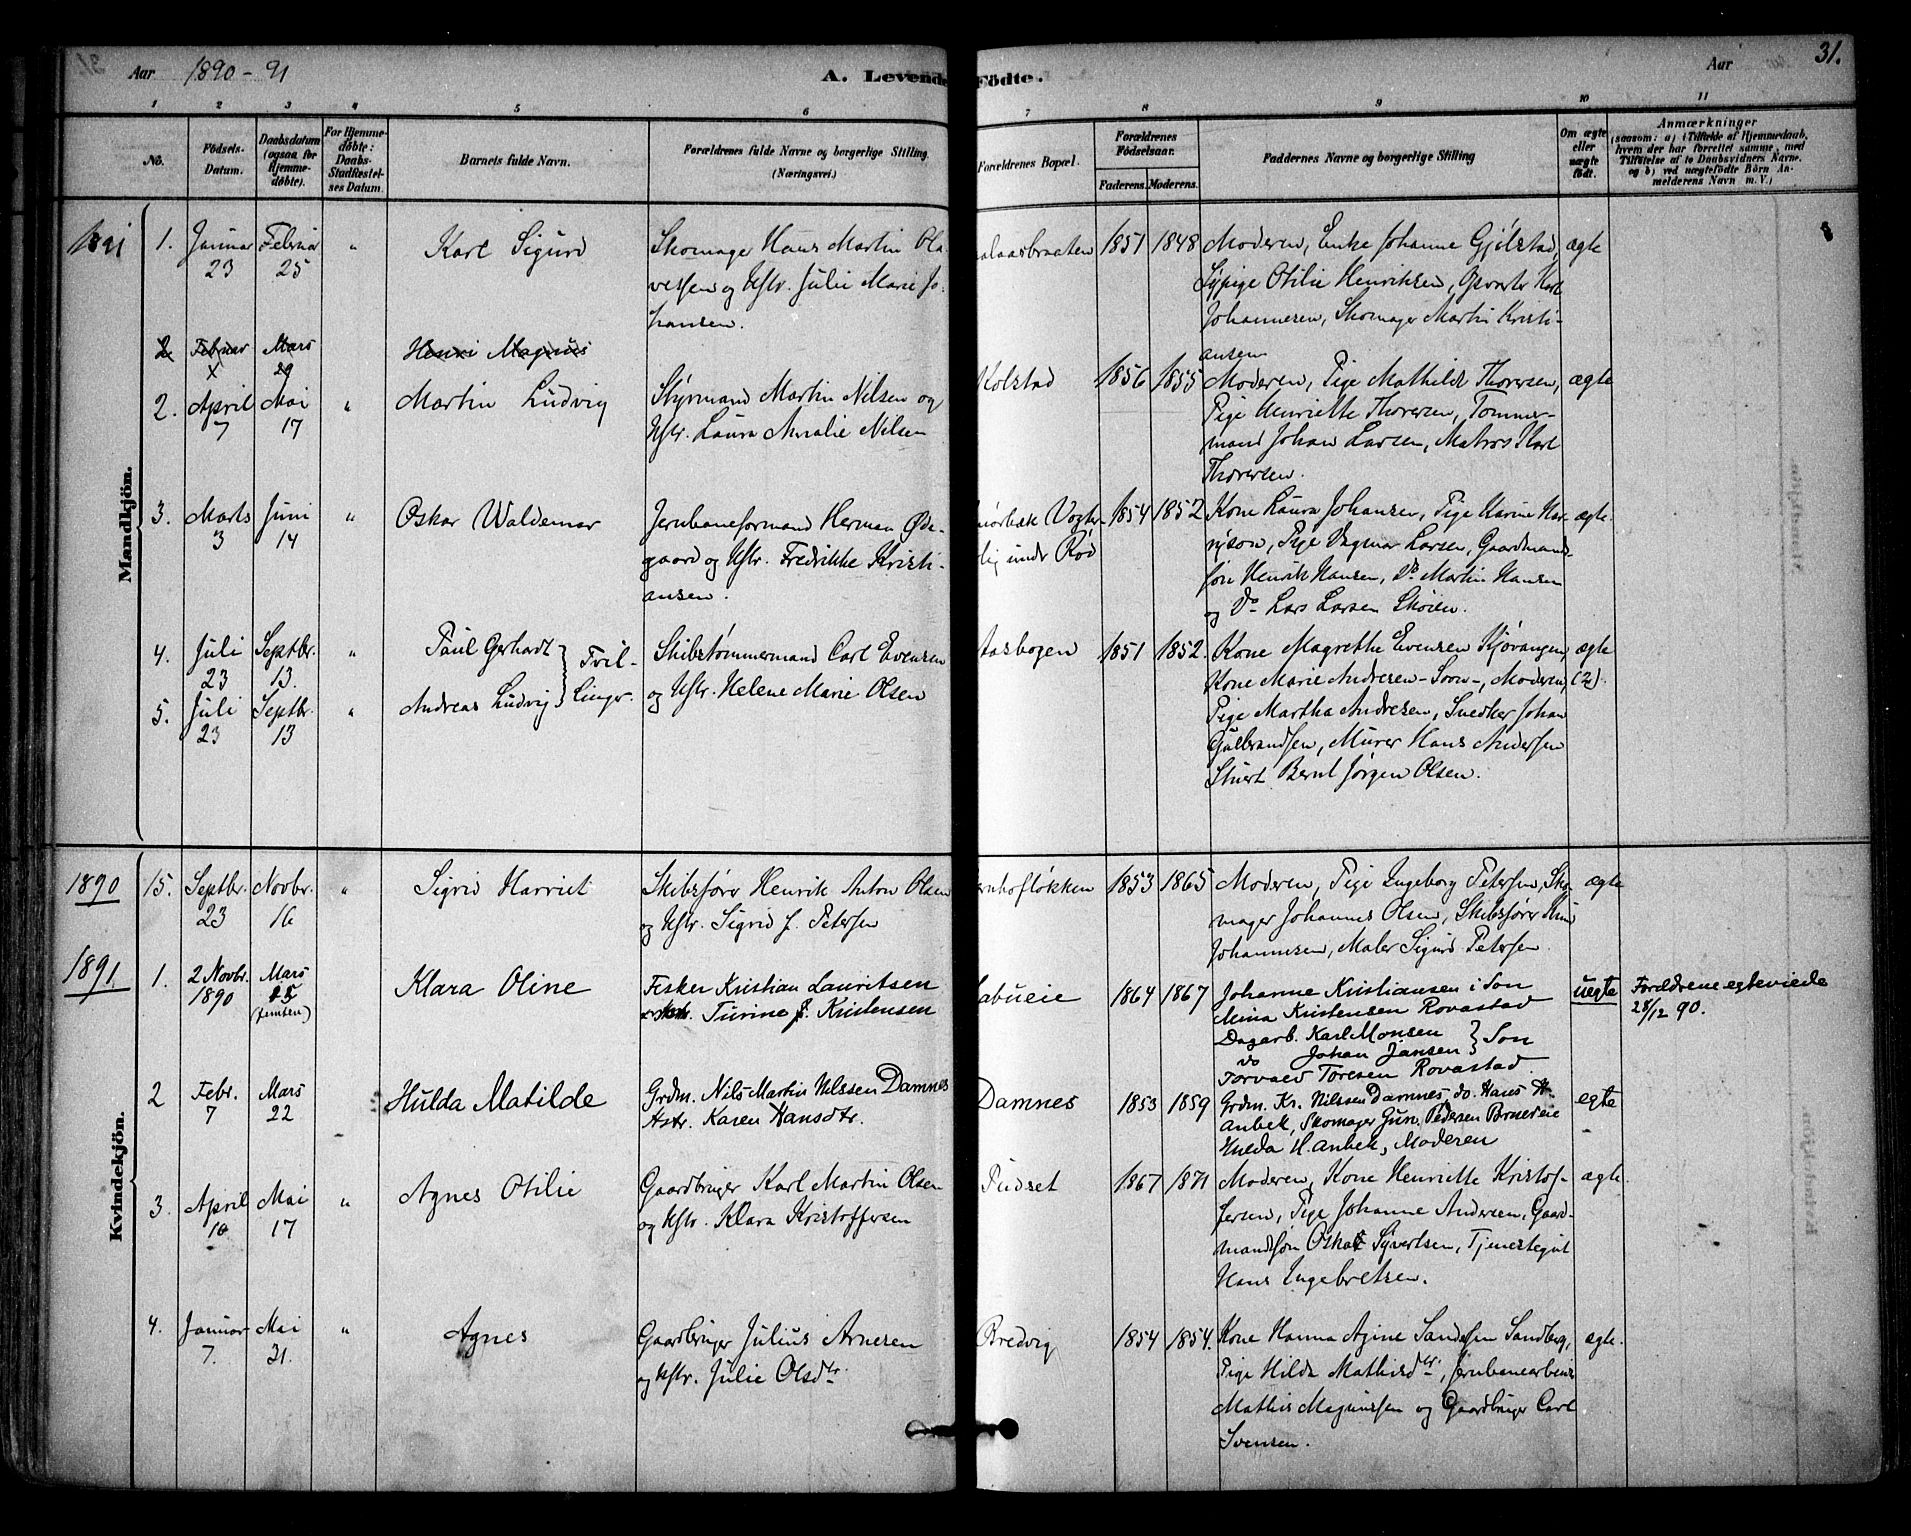 Aar 1890-91
A. Levende Fødte.
Aar
31.
1 2 3 4 5 6 7 8 9 10 11
No.
Fødsels-Datum.
Daabsdatum (ogsaa for Hjemmedøbte).
For Hjemmedøbte: Daabs-Stadfæstelses Datum.
Barnets fulde Navn.
Forældrenes fulde Navne og borgerlige Stilling. (Næringsvei.)
Forældrenes Bopæl.
Forældrenes Fødselsaar.
Faderens. Moderens.
Faddernes Navne og borgerlige Stilling
Om ægte eller uægte født.
Anmærkninger
(saasom: a) i Tilfælde af Hjemmedaab, hvem der har forrettet samme, med Tilføielse af to Daabsvidners Navne, og b) ved uægtefødte Børn Anmelderens Navn m. V.)
Mandkjøn.
1891
1. Januar 23 Februar 25 " Karl Sigurd
Skomager Hans Martin Ola-
vessen og Hstr. Julie Marie Jo-
hansen.
1851 1848
Moderen, Enke Johanne Gjølstad,
Sypige Otilie Henriksen, Karl
Johannesen, Skomager Martin Kristi-
ansen
ægte
2 Februar x Mars 29 Henri Magnus
2. April 7 Mai 17 " Martin Ludvig
Styrmand Martin Nilsen og
Hstr. Laura Amalie Nilsen
Kolstad 1856 1855
Moderen, Pige Mathilde Thoresen,
Pige Henriette Thoresen, Tømmer-
mand Johan Larsen, Matros Karl
Thoresen.
ægte
3. Marts 3 Juni 14 " Oskar Waldemar
Jernbaneformand Herman Øde-
gaard og Hstr. Fredrikke Kristi-
ansen.
Vogter-
lig under Rød
1854 1852
Kone Laura Johansen, Pige Karine Har-
Pige Dagmar Larsen, Gaardmand-
søn Henrik Hansen, Do Martin Hansen
og Do Lars Larsen Skoien.
ægte.
4. Juli 23 Septbr. 13. " Paul Gerhardt
5. Juli 23 Septbr. 13 " Andreas Ludvig
} Tvil-
linger.
Skibstømmermand Carl Evensen
og Hstr. Helene Marie Olsen
Aasbogen 1851 1852.
Kone Magrethe Evensen Kjøvangen,
Kone Marie Andresen - Soon -, Moderen,
Pige Martha Andresen, Snedker Johan
Gulbrandsen, Murer Hans Andersen
Stuert Bernt Jørgen Olsen.
ægte (2).
Kvindekjøn.
1890
15. Septbr. 23 Novbr. 16 " Sigrid Harriet
Skibsfører Henrik Anton Olsen
og Hstr. Sigrid J. Petersen
1853 1865
Moderen, Pige Ingeborg Petersen, Sko-
mager Johannes Olsen, Skibsfører
Johannesen, Maler Sigurd Petersen.
ægte
1891.
1. 2 Novbr. 1890 Mars 15 Klara Oline
Fisker Kristian Lauritsen
Turine J. Kristensen
Labueie 1864 1867
Johanne Kristiansen i Son
Mina Kristensen Rovastad
Dagarb. Karl Monsen
do Johan Jansen } Son
Torvald Toresen Rovastad.
uegte
Foreldrene egteviede
28/12 90.
2 Febr. 7 Mars 22 Hulda Matilde
Grdm. Nils Martin Nilssen Damnes
Hstr. Karen Hansdtr.
Damnes 1853 1859
Grdm. Kr. Nilssen Damnes, do. Hans H.
Anbek, Skomager Gun. Pedersen Borneeie
Hulda H. Anbek, Moderen
egte
3. April 10 Mai 17 " Agnes Otilie
Gaardbruger Karl Martin Olsen
og Hstr. Klara Kristoffersen
Pudset 1867 1871
Moderen, Kone Henriette Kristof-
fersen, Pige Johanne Andersen, Gaard-
mandsøn Oskar Syvertsen, Tjenestegut
Hans Ingebretsen.
ægte
4. Januar 7. Mai 31. " Agnes
Gaardbruger Julius Arnesen
og Hstr. Julie Olsdtr.
Bredvig 1854 1854.
Kone Hanna Agine Sandberg,
Pige Hilda Mathisdtr., Jernbanearbeider
Mathis Magnussen og Gaardbruger Carl
Svensen.
ægte.